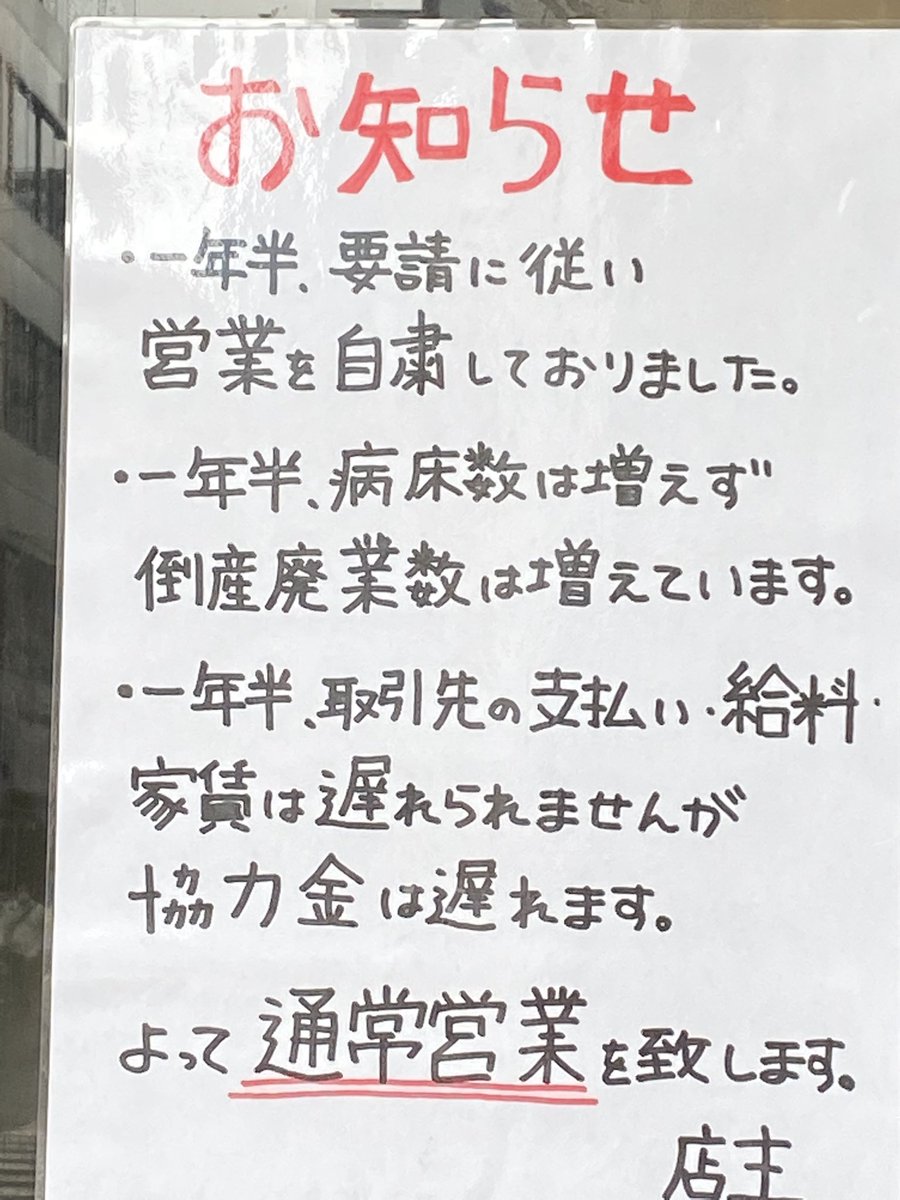 お知らせ
・一年半、要請に従い
営業を自粛しておりました。
・一年半、病床数は増えず
倒産廃業数は増えています。
・一年半、取引先の支払い・給料・
家賃は遅れられませんが
協力金は遅れます。
よって通常営業を致します。
店主